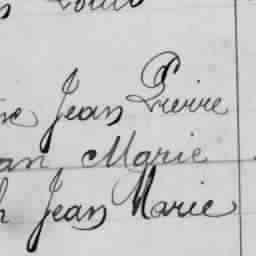 Louis
Jean Pierre
an Marie
h Jean Marie